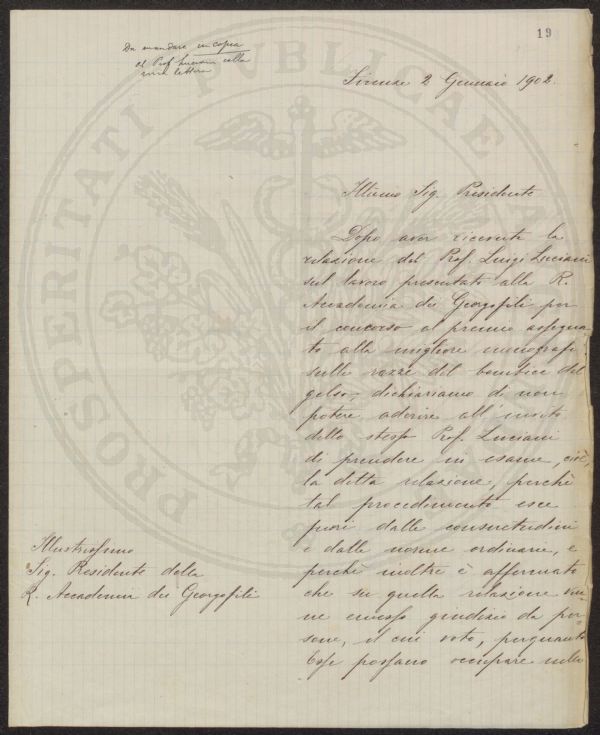 19
Da mandare in copia
al Prof Luciani colla
mia lettera
Firenze 2 Gennaio 1902.
Illumo Sig. Presidente
Dopo aver ricevuta la
relazione del Prof. Luigi Luciani
sul lavoro presentato alla R.
Accademia dei Georgofili per
il concorso al premio assegna
to alla migliore monografia
sulle razze del bombice del
gelso, dichiariamo di non
potere aderire all'invito
dello stesso Prof. Luciani
di prendere in esame, cioè,
la detta relazione, perchè
tal procedimento esce
fuori dalle consuetudini
e dalle norme ordinarie, e
perchè inoltre è affermato
che su quella relazione ven-
ne emesso giudizio da per-
sone, il cui voto, perquanto
Esse possano occupare nella
Illustrissimo
Sig. Presidente della
R. Accademia dei Georgofili
PROSPERITATI PUBLICAE